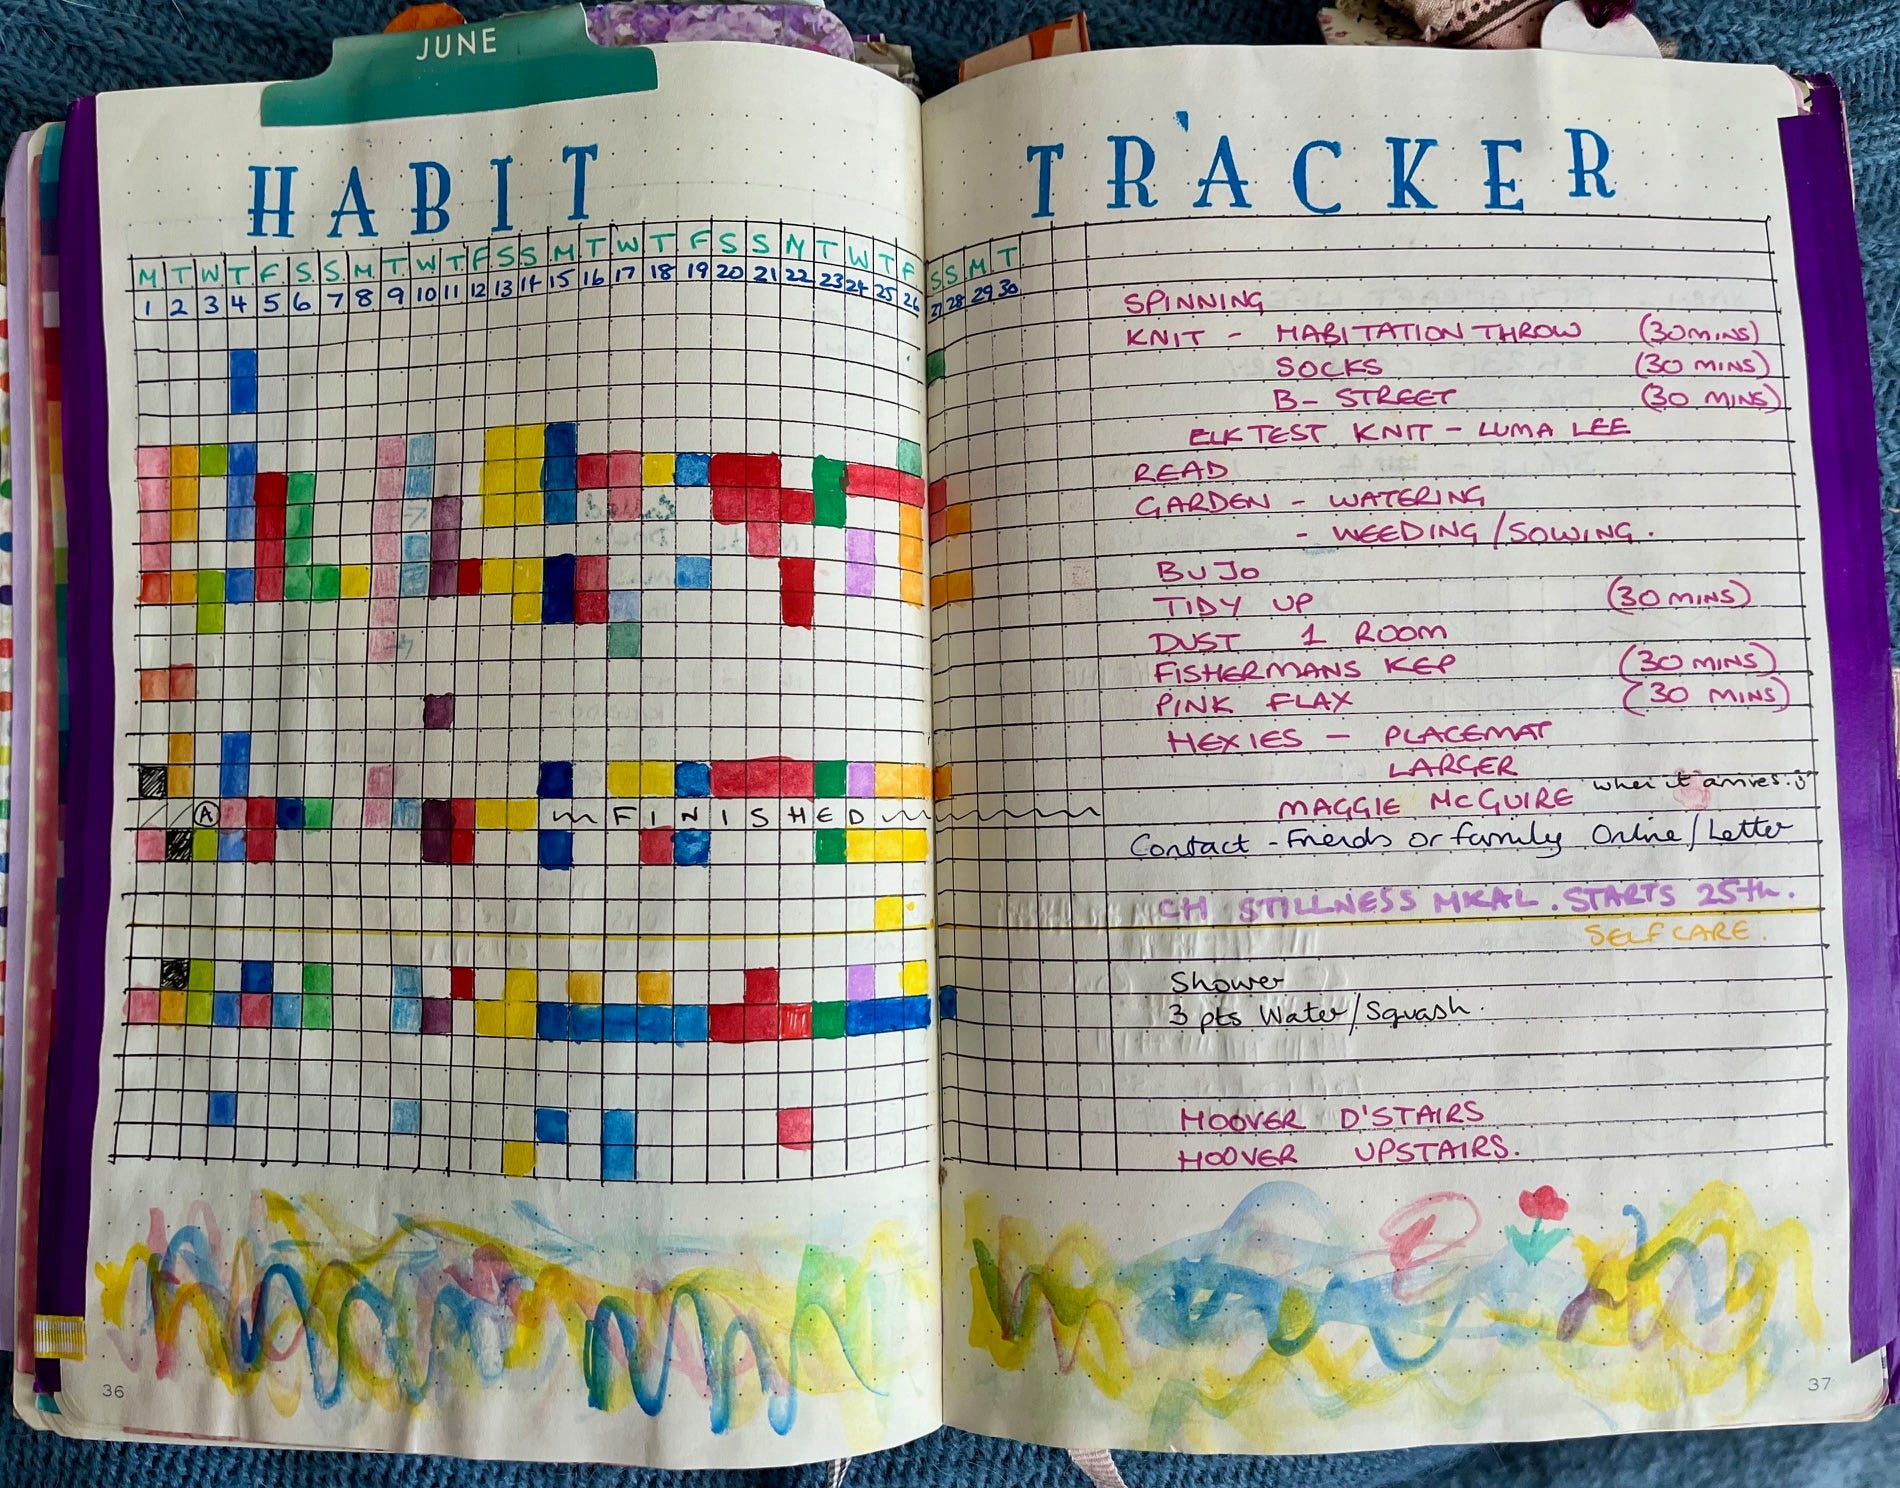 JUNE
HABIT TRACKER
M T W T F S S M T W T F S S M T W T F S S M T W T F S S M T
1 2 3 4 5 6 7 8 9 10 11 12 13 14 15 16 17 18 19 20 21 22 23 24 25 26 27 28 29 30
SPINNING
KNIT - HABITATION THROW (30 MINS)
SOCKS (30 MINS)
B- STREET (30 MINS)
ELK TEST KNIT - LUMA LEE
READ
GARDEN - WATERING
- WEEDING / SOWING.
BUJO
TIDY UP (30 MINS)
DUST 1 ROOM
FISHERMANS KEP (30 MINS)
PINK FLAX (30 MINS)
HEXIES - PLACEMAT
LARGER
A FINISHED MAGGIE McGUIRE when it arrives.
Contact - Friends or family Online / Letter
CH STILLNESS MKAL. STARTS 25th.
SELFCARE.
Shower
3 pts Water/Squash.
HOOVER D'STAIRS
HOOVER UPSTAIRS.
36
37